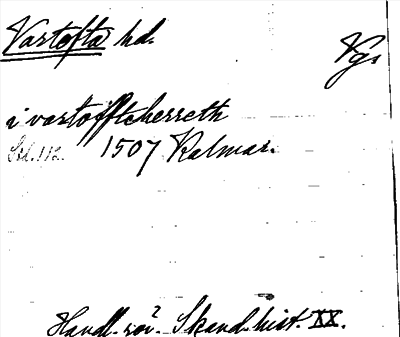 Vartofta hd.
Vgs
i vartofftcherreth
Sid. 112. 1507 Kalmar.
Handl. rör. Skand. hist. XX.